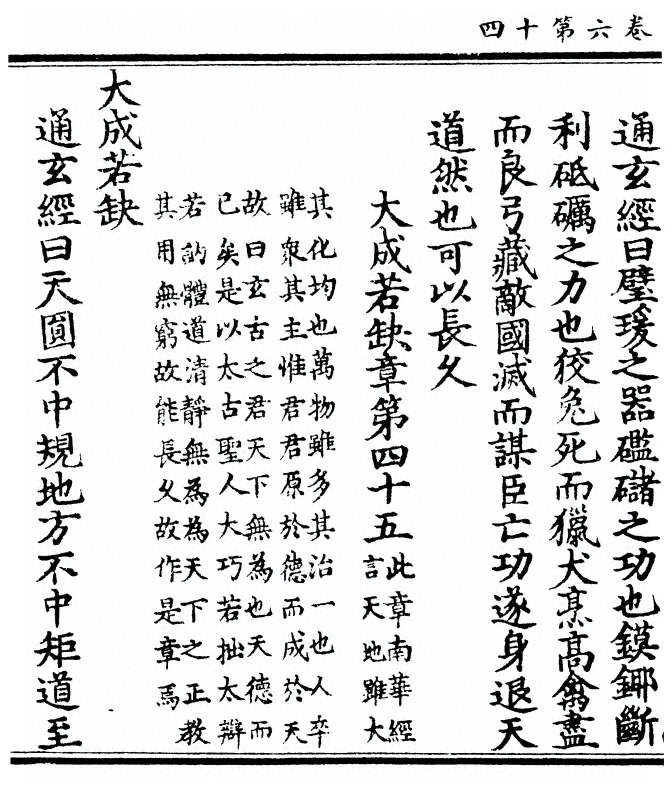 卷六第十四
通玄經曰璧瑗之器礛䃴之功也鏌鋣斷
利砥礪之力也狡兔死而獵犬烹高禽盡
而良弓藏敵國滅而謀臣亡功遂身退天
道然也可以長久
大成若缺章第四十五
此章南華經
言天地雖大
其化均也萬物雖多其治一也人卒
雖衆其主惟君君原於德而成於天
故曰玄古之君天下無為也天德而
已矣是以太古聖人大巧若拙太辯
若訥體道清靜無為為天下之正教
其用無窮故能長久故作是章焉
大成若缺
通玄經曰天圓不中規地方不中矩道至